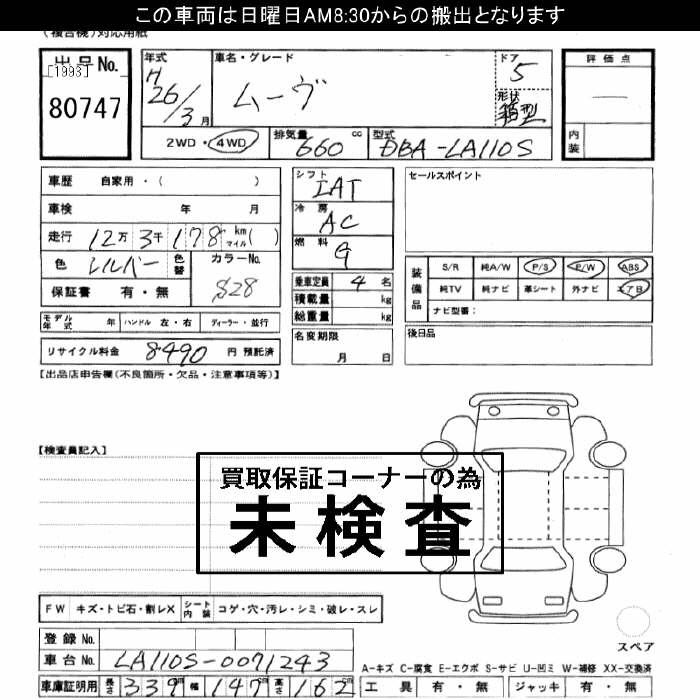 この車両は日曜日AM8:30からの搬出となります
(複合機)対応用紙
出品No.
[1993]
80747
年式 車名・グレード ドア 評価点
H26/3月 ムーヴ 5
形状 箱型 ―
2WD・4WD 排気量 660 cc 型式 DBA-LA110S 内装
車歴 自家用・( )
車検 年 月
走行 12万3千178 km マイル( )
色 シルバー 色替 カラーNo.
保証書 有・無 S28
シフト IAT
冷房 AC
燃料 G
乗車定員 4 名
積載量 kg
総重量 kg
名変期限
月 日
セールスポイント
装備品 S/R 純A/W P/S P/W ABS
純TV 純ナビ 革シート 外ナビ エアB
ナビ型番:
後日品
モデル年式 年 ハンドル 左・右 ディーラー・並行
リサイクル料金 8490 円 預託済
【出品店申告欄(不良箇所・欠品・注意事項等)】
【検査員記入】
買取保証コーナーの為
未検査
FW キズ・トビ石・割レX シート内装 コゲ・穴・汚レ・シミ・破レ・スレ
登録No.
車台No. LA110S-0071243
スペア
A-キズ C-腐食 E-エクボ S-サビ U-凹ミ W-補修 XX-交換済
車庫証明用 長さ 339cm 幅 147cm 高さ 162
工具 有・無 ジャッキ 有・無